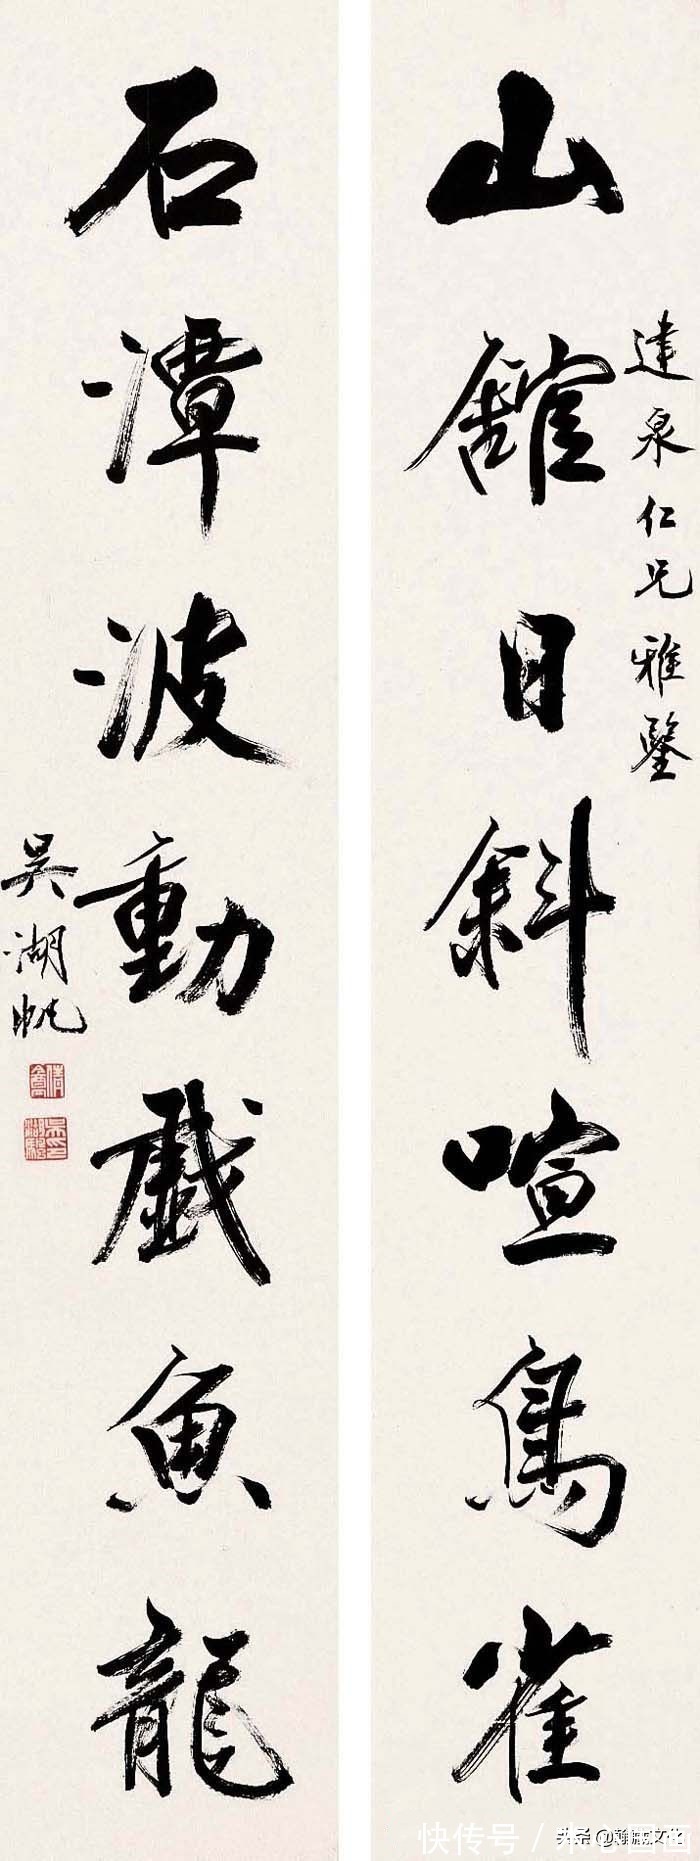 山館日斜喧鳥雀
建泉仁兄雅鑒
石潭波動戲魚龍
吳湖帆
快传号／
头条@翰墨文化